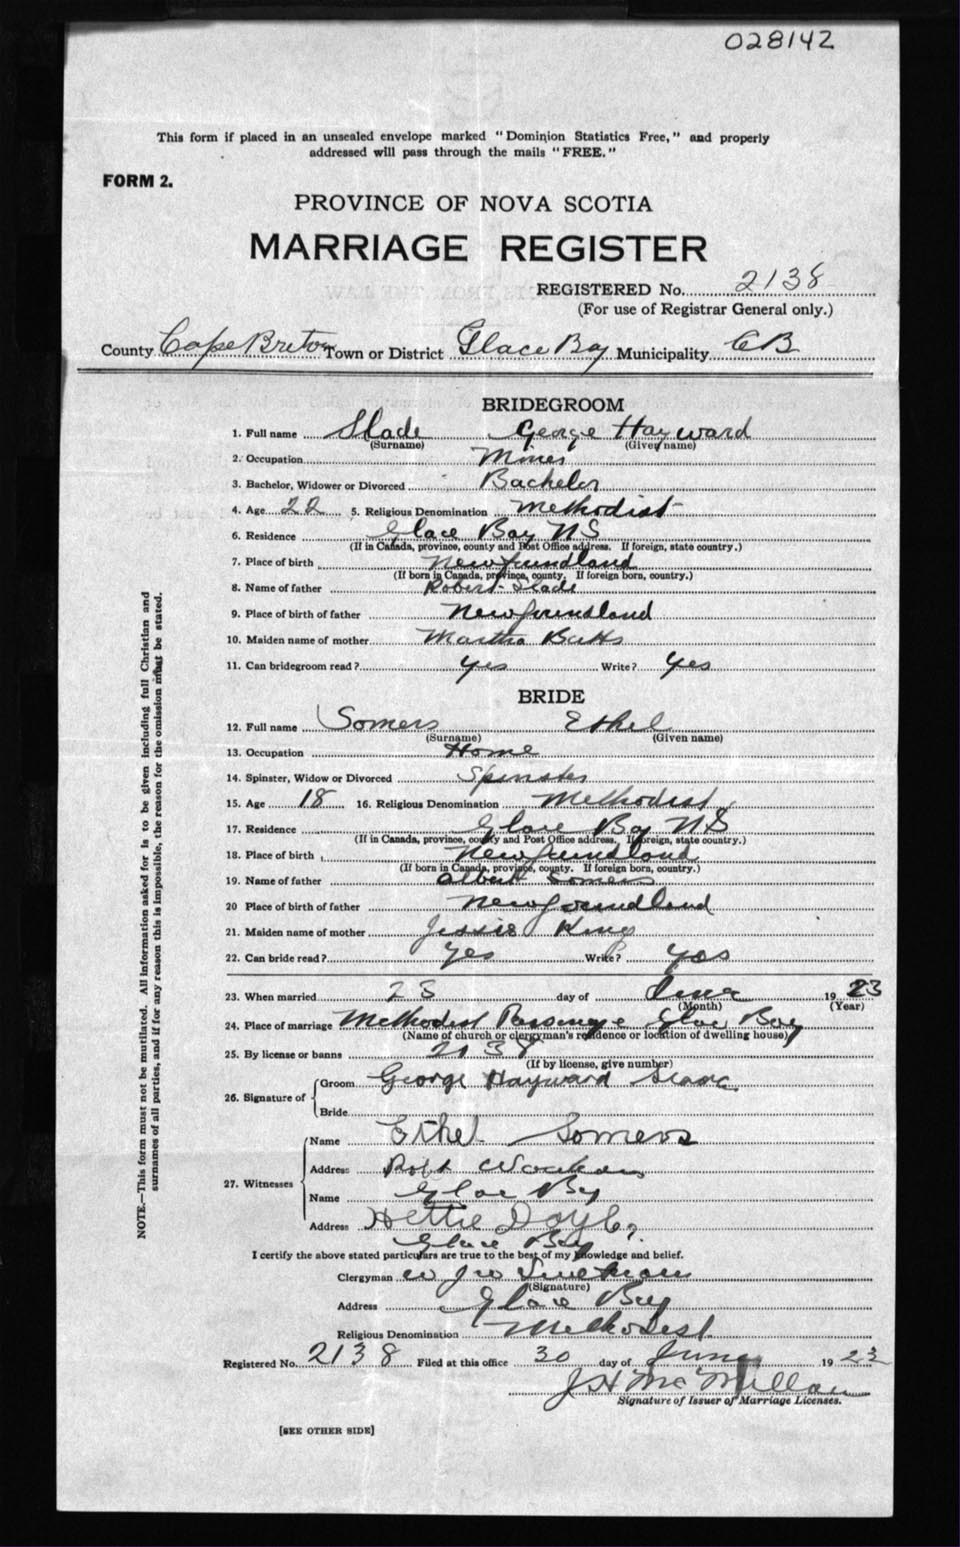 028142
This form if placed in an unsealed envelope marked "Dominion Statistics Free," and properly
addressed will pass through the mails "FREE."
FORM 2.
PROVINCE OF NOVA SCOTIA
MARRIAGE REGISTER
REGISTERED No. 2138
(For use of Registrar General only.)
County Cape Breton Town or District Glace Bay Municipality CB
BRIDEGROOM
1. Full name Slade George Hayward
(Surname) (Given name)
2. Occupation Miner
3. Bachelor, Widower or Divorced Bachelor
4. Age 22 5. Religious Denomination Methodist
6. Residence Glace Bay NS
(If in Canada, province, county and Post Office address. If foreign, state country.)
7. Place of birth Newfoundland
(If born in Canada, province, county. If foreign born, country.)
8. Name of father Robert Slade
9. Place of birth of father Newfoundland
10. Maiden name of mother Martha Butts
11. Can bridegroom read? Yes Write? Yes
BRIDE
12. Full name Somers Ethel
(Surname) (Given name)
13. Occupation Home
14. Spinster, Widow or Divorced Spinster
15. Age 18 16. Religious Denomination Methodist
17. Residence Glace Bay NS
(If in Canada, province, county and Post Office address. If foreign, state country.)
18. Place of birth Newfoundland
(If born in Canada, province, county. If foreign born, country.)
19. Name of father Albert Somers
20 Place of birth of father Newfoundland
21. Maiden name of mother Jessie King
22. Can bride read? Yes Write? Yes
23. When married 23 day of June 1923
(Month) (Year)
24. Place of marriage Methodist Parsonage Glace Bay
(Name of church or clergyman's residence or location of dwelling house)
25. By license or banns 2138
(If by license, give number)
26. Signature of Groom George Hayward
Bride
Ethel Somers
27. Witnesses Name
Address Robt
Name Glace Bay
Address Hettie Doyle
Glace Bay
I certify the above stated particulars are true to the best of my knowledge and belief.
Clergyman W J W
(Signature)
Address Glace Bay
Religious Denomination Methodist
Registered No. 2138 Filed at this office 30 day of June 1923
J H McMillan
Signature of Issuer of Marriage Licenses.
[SEE OTHER SIDE]
NOTE.—This form must not be mutilated. All information asked for is to be given including full Christian and
surnames of all parties, and if for any reason this is impossible, the reason for the omission must be stated.